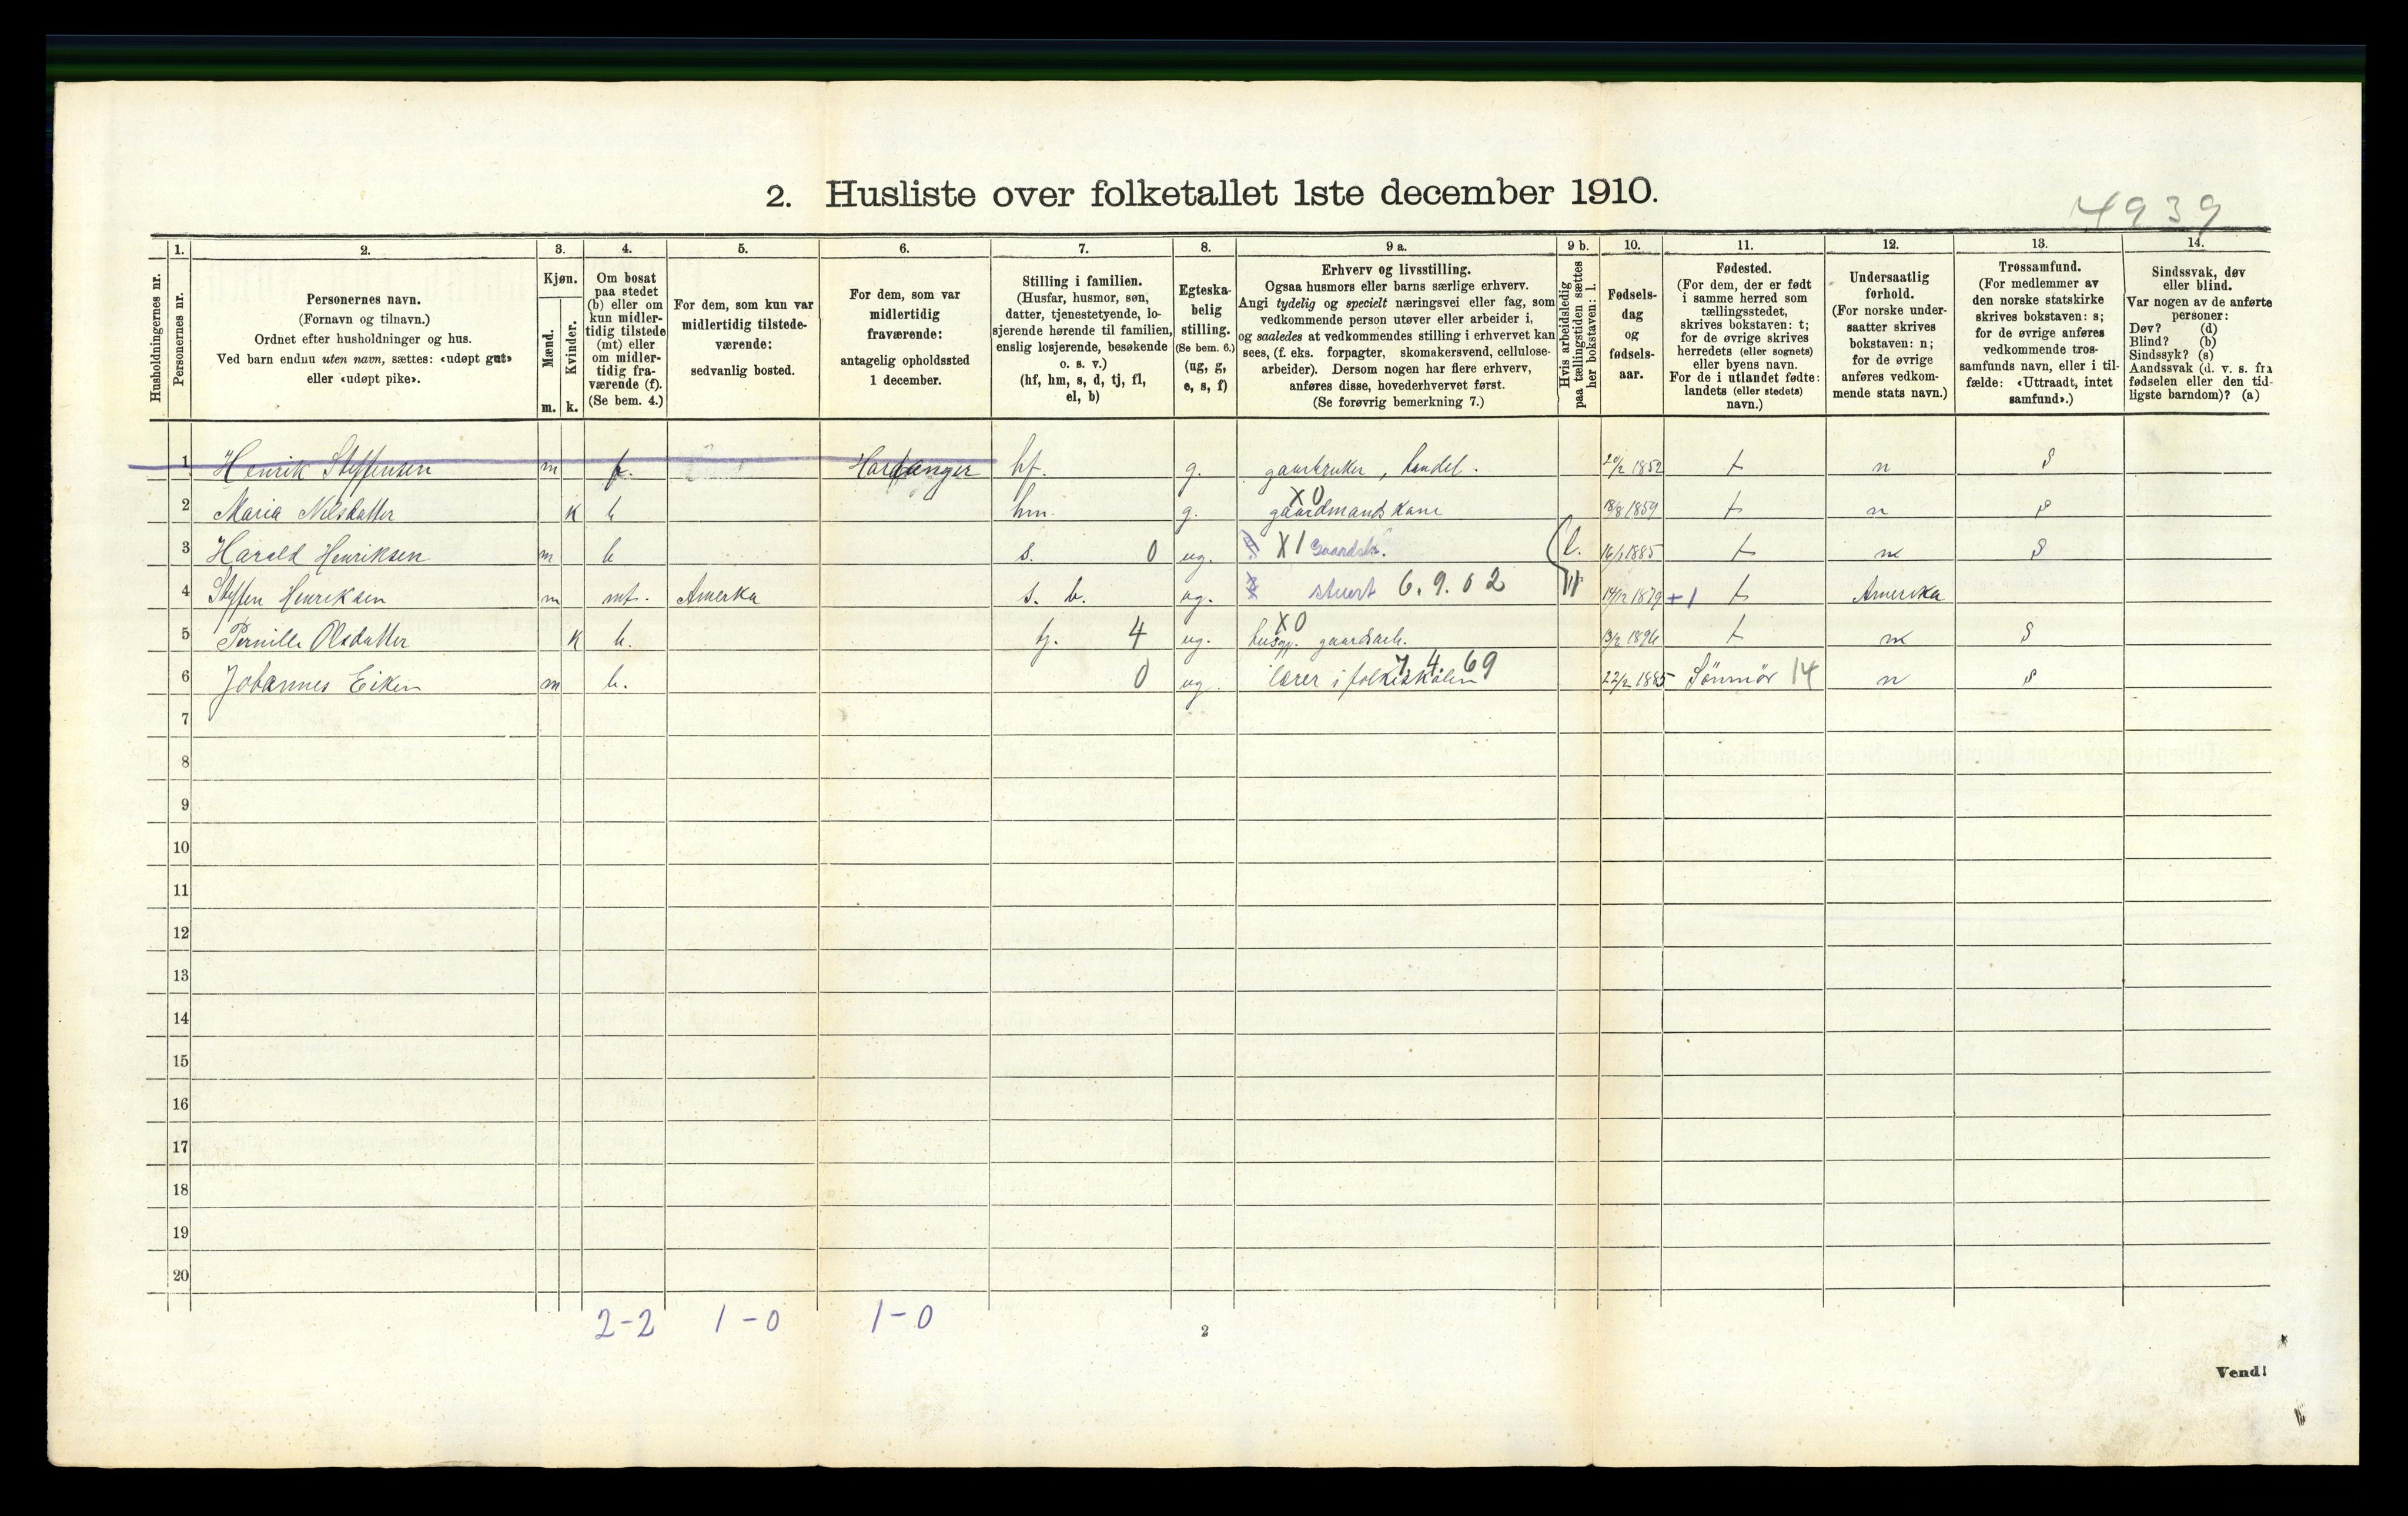 2. Husliste over folketallet 1ste december 1910.
4939
Husholdningernes nr.
1. Personernes nr.
2. Personernes navn. (Fornavn og tilnavn.) Ordnet efter husholdninger og hus. Ved barn endnu uten navn, sættes: «udøpt gut» eller «udøpt pike».
3. Kjøn. Mænd. m. Kvinder. k.
4. Om bosat paa stedet (b) eller om kun midlertidig tilstede (mt) eller om midlertidig fraværende (f). (Se bem. 4.)
5. For dem, som kun var midlertidig tilstedeværende: sedvanlig bosted.
6. For dem, som var midlertidig fraværende: antagelig opholdssted 1 december.
7. Stilling i familien. (Husfar, husmor, søn, datter, tjenestetyende, losjerende hørende til familien, enslig losjerende, besøkende o. s. v.) (hf, hm, s, d, tj, fl, el, b)
8. Egteskabelig stilling. (Se bem. 6.) (ug, g, e, s, f)
9 a. Erhverv og livsstilling. Ogsaa husmors eller barns særlige erhverv. Angi tydelig og specielt næringsvei eller fag, som vedkommende person utøver eller arbeider i, og saaledes at vedkommendes stilling i erhvervet kan sees, (f. eks. forpagter, skomakersvend, cellulosearbeider). Dersom nogen har flere erhverv, anføres disse, hovederhvervet først. (Se forøvrig bemerkning 7.)
9 b. Hvis arbeidsledig paa tællingstiden sættes her bokstaven: l.
10. Fødselsdag og fødselsaar.
11. Fødested. (For dem, der er født i samme herred som tællingsstedet, skrives bokstaven: t; for de øvrige skrives herredets (eller sognets) eller byens navn. For de i utlandet fødte: landets (eller stedets) navn.)
12. Undersaatlig forhold. (For norske undersaatter skrives bokstaven: n; for de øvrige anføres vedkommende stats navn.)
13. Trossamfund. (For medlemmer av den norske statskirke skrives bokstaven: s; for de øvrige anføres vedkommende trossamfunds navn, eller i tilfælde: «Uttraadt, intet samfund».)
14. Sindssvak, døv eller blind. Var nogen av de anførte personer: Døv? (d) Blind? (b) Sindssyk? (s) Aandssvak (d. v. s. fra fødselen eller den tidligste barndom)? (a)
1 Henrik Steffensen m f. Hardanger hf. g. gaarbruker, handel. 20/2 1852 t n S
2 Maria Nilsdatter k b hm. g. X0 gaardmands kone 18/8 1859 t n S
3 Harald Henriksen m b s. 0 ug. X1 Gaardsb. l. 16/1 1885 t n S
4 Steffen Henriksen m mt. Amerka s. b. ug. stuert 6.9.02 " 14/12 1879 +1 t Amerika
5 Pernille Olsdatter k b. tj. 4 ug. X0 husgj. gaardsarb. 13/2 1896 t n S
6 Johannes Eiken m b. 0 ug. lærer i folkeskolen 7 4. 69 22/2 1885 Sönmör 14 n S
7
8
9
10
11
12
13
14
15
16
17
18
19
20
2-2 1-0 1-0
2
Vend!